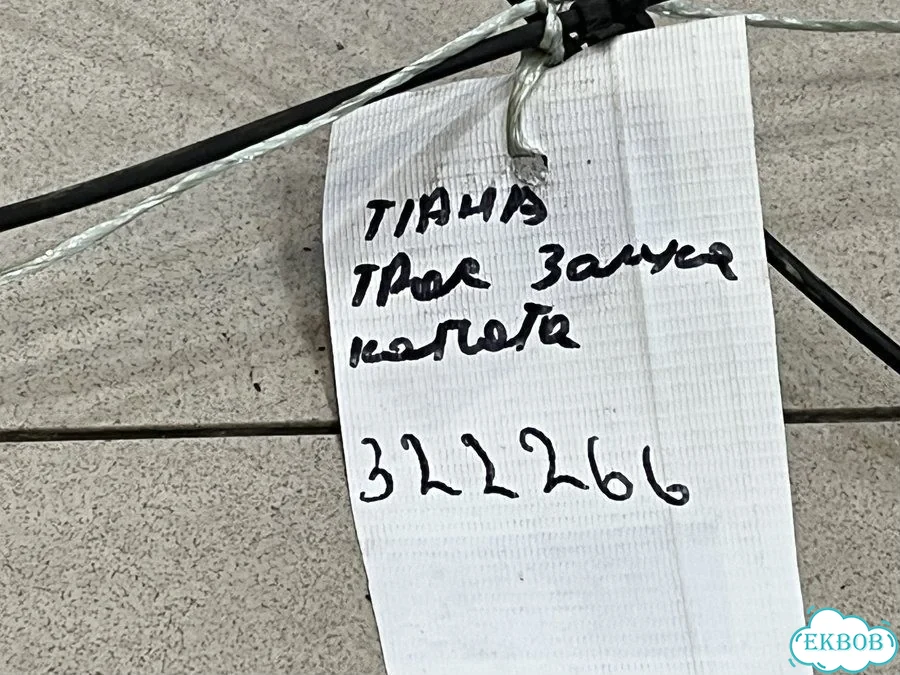 ТІАНА
Трос Замка
капота
322266
EKBOB